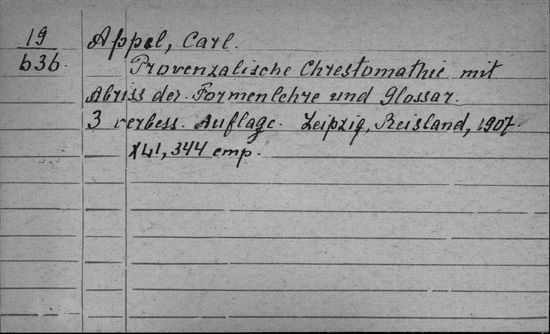 19
b36.
Appel, Carl.
Provenzalische Chrestomathie mit
Abriss der Formenlehre und Glossar.
3 verbess. Auflage. Leipzig, Reisland, 1907.
XLI, 344 стр.